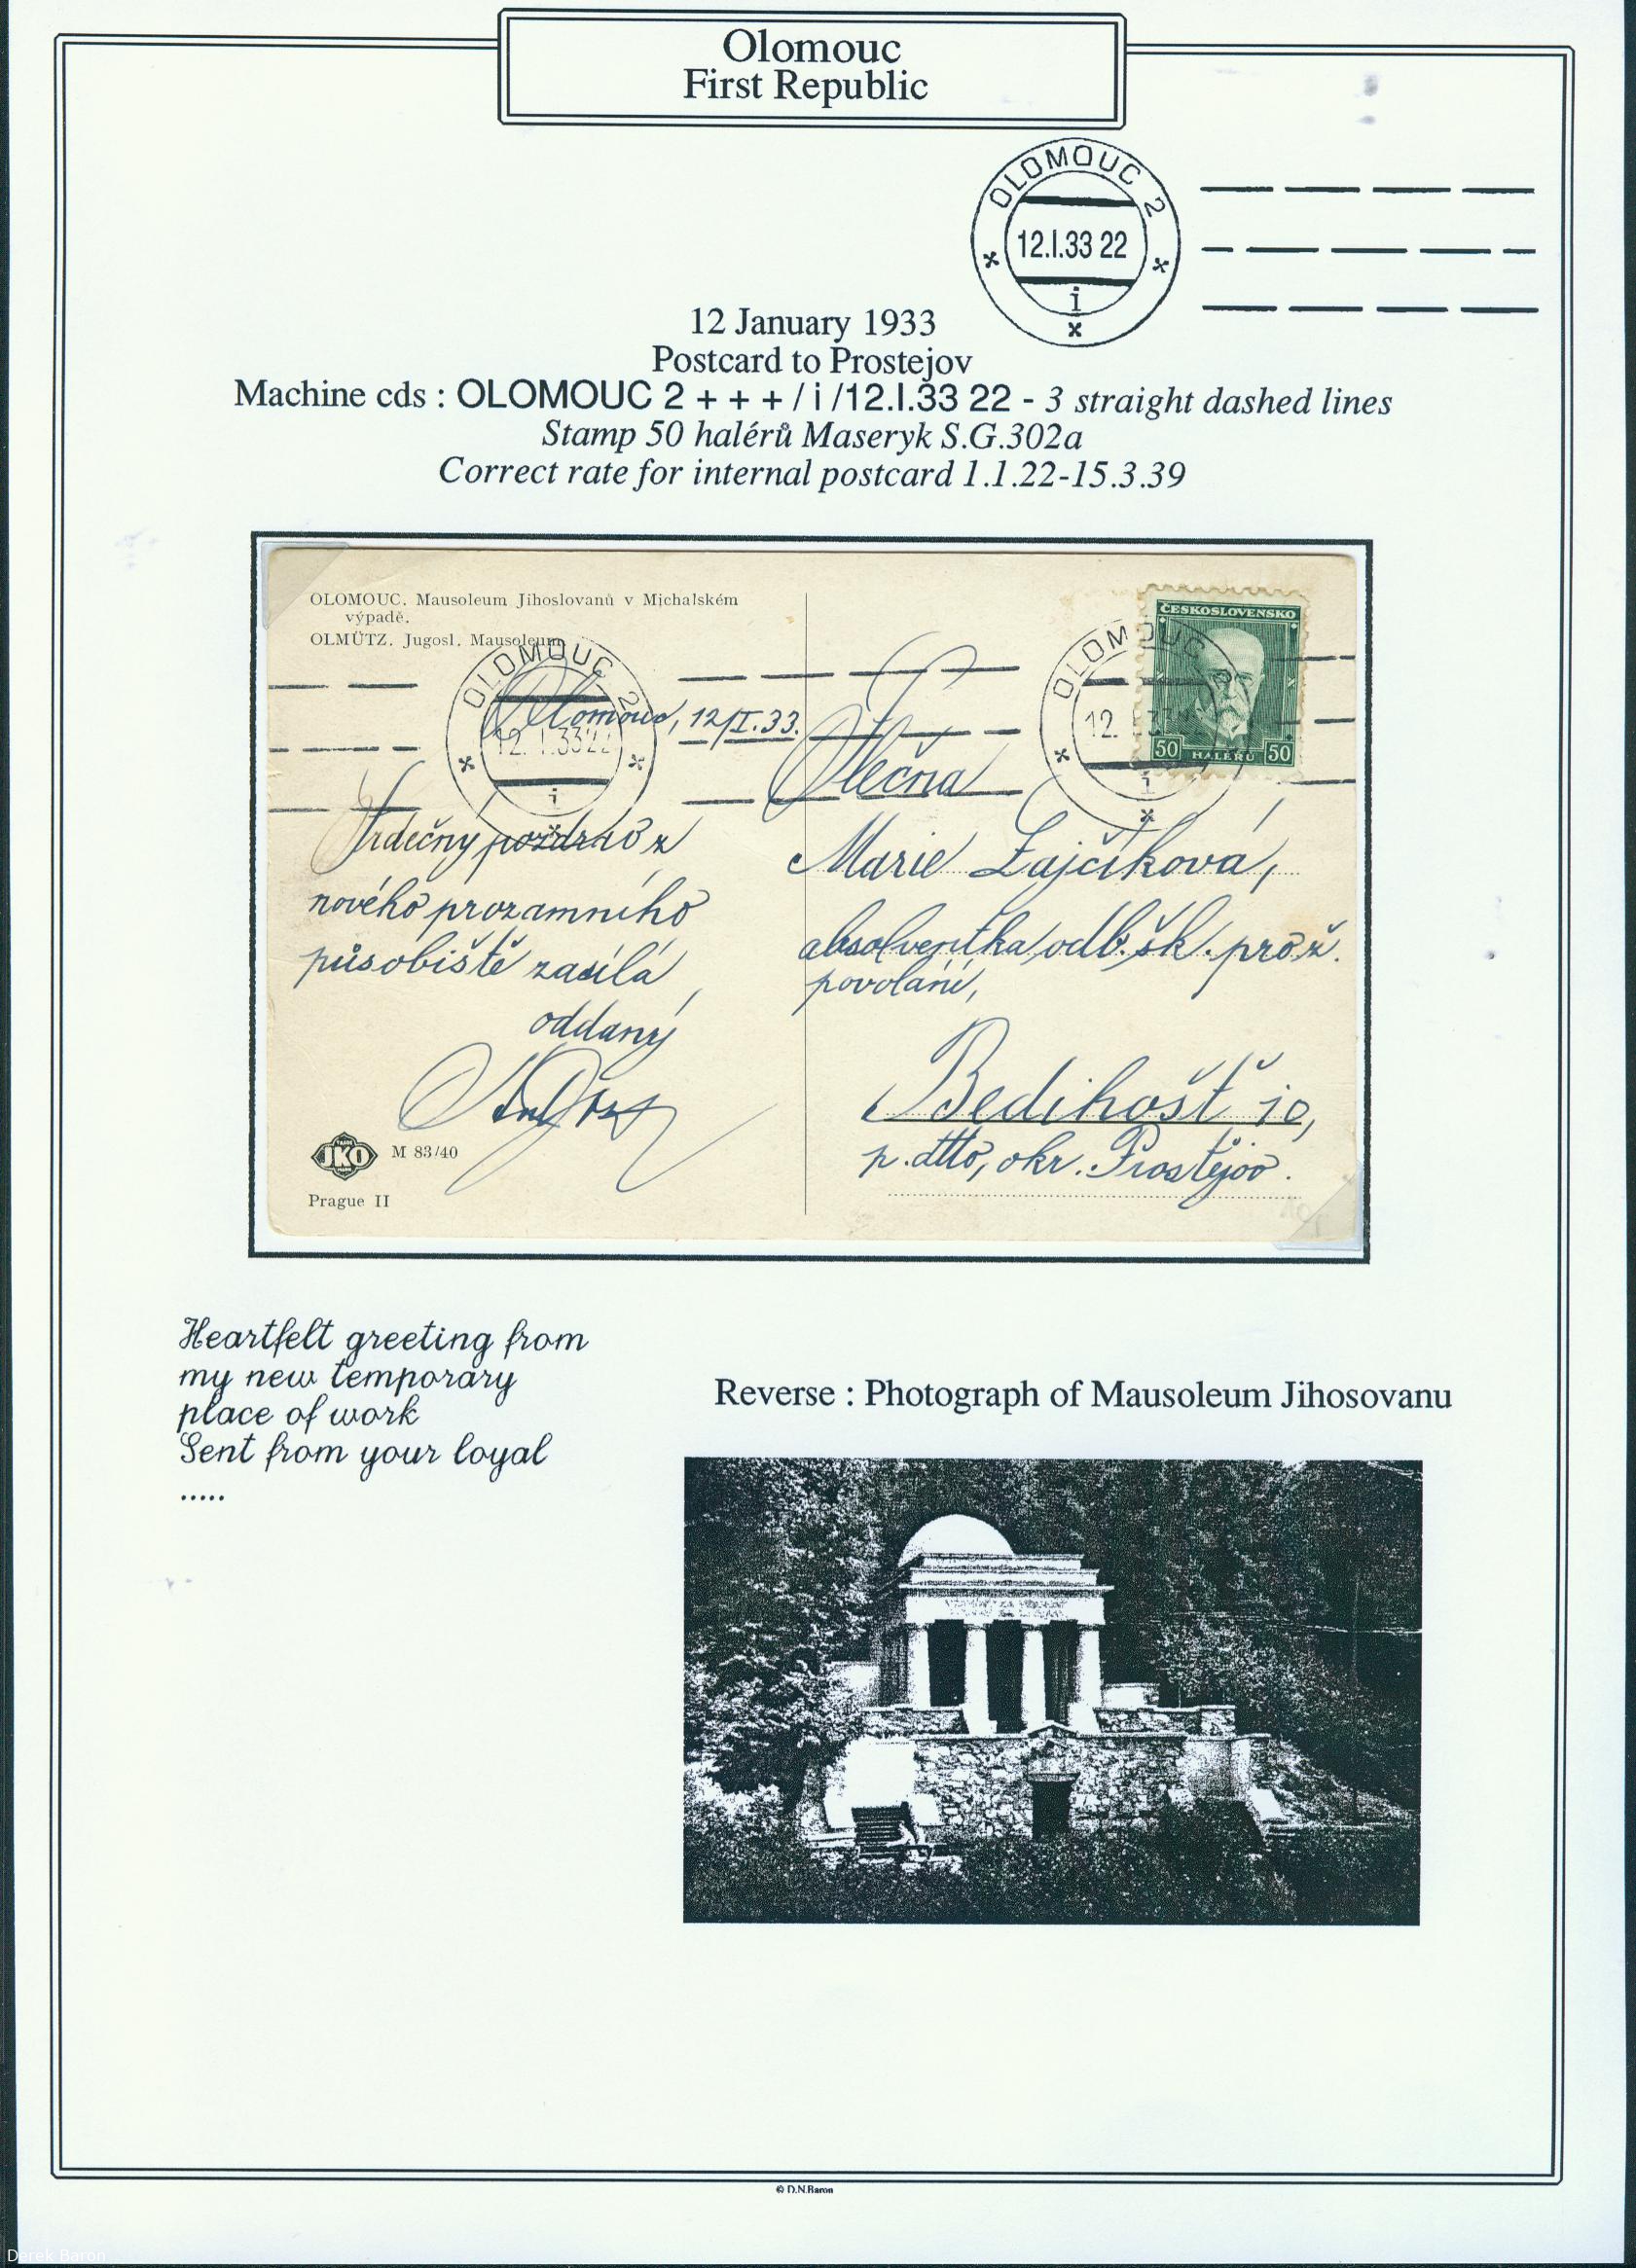 Olomouc
First Republic
OLOMOUC 2
12.I.33 22
i
12 January 1933
Postcard to Prostejov
Machine cds : OLOMOUC 2 + + + / i /12.I.33 22 - 3 straight dashed lines
Stamp 50 halérů Maseryk S.G.302a
Correct rate for internal postcard 1.1.22-15.3.39
OLOMOUC. Mausoleum Jihoslovanů v Michalském
výpadě.
OLMÜTZ. Jugosl. Mausoleum
OLOMOUC 2
12. I.33 22
i
Olomouc, 12/I.33.
Srdečný pozdrav z
nového prozamního
působiště zasílá
oddaný
JKO
M 83/40
Prague II
ČESKOSLOVENSKO
50 HALÉRŮ 50
OLOMOUC
12.
i
Slečna
Marie Zajčíková,
absolventka odb. šk. pro ž.
povolání,
Bedihošť 10,
p. dtto, okr. Prostějov.
Heartfelt greeting from
my new temporary
place of work
Sent from your loyal
.....
Reverse : Photograph of Mausoleum Jihosovanu
© D.N.Baron
Derek Baron